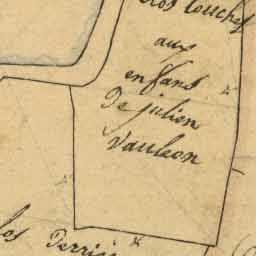 clos louches
aux
enfans
De julien
Vauleon
los Derriè